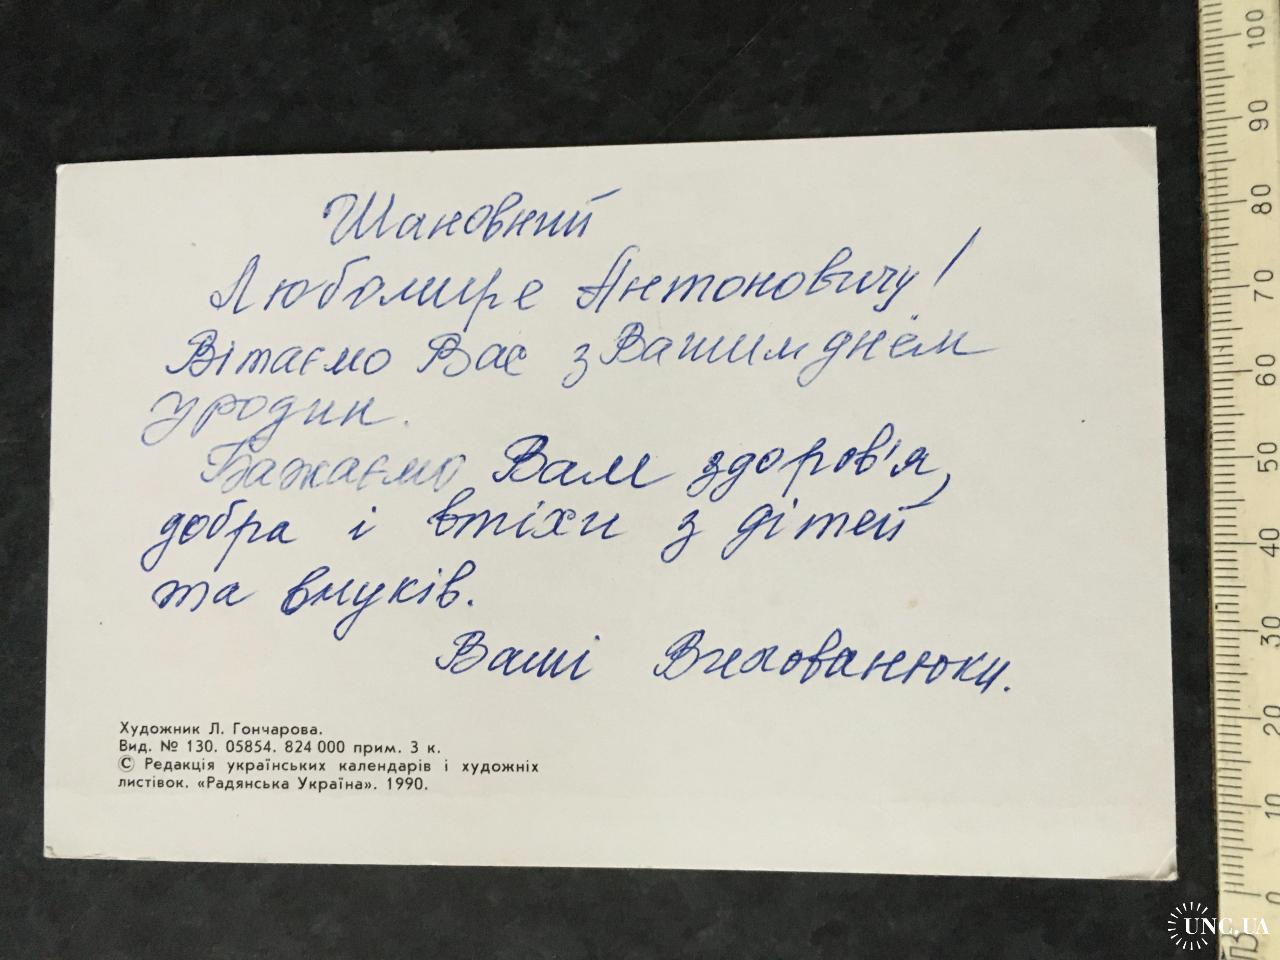 Шановний
Любомире Антоновичу!
Вітаємо Вас з Вашим днем
уродин.
Бажаємо Вам здоров'я,
добра і втіхи з дітей
та внуків.
Ваші Вихованюки.
Художник Л. Гончарова.
Вид. № 130. 05854. 824 000 прим. 3 к.
© Редакція українських календарів і художніх
листівок. «Радянська Україна». 1990.
100
90
80
70
60
50
40
30
20
10
0
UNC.UA